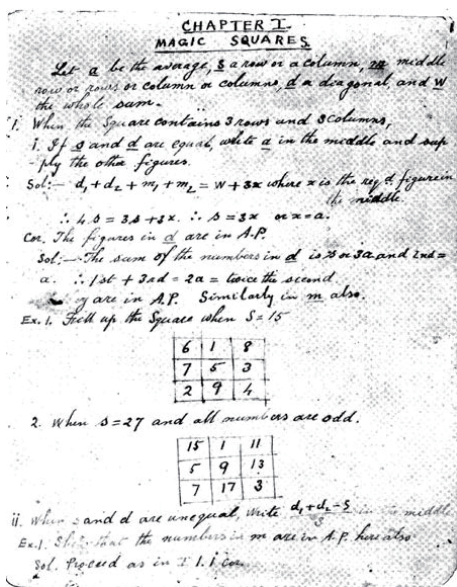 CHAPTER I.
MAGIC SQUARES
Let a be the average, s a row or a column, m middle
row or rows or column or columns, d a diagonal, and W
the whole sum.
1. When the Square contains 3 rows and 3 columns,
i. If s and d are equal, write a in the middle and sup
-ply the other figures.
Sol:— d₁ + d₂ + m₁ + m₂ = W + 3x where x is the reqd figure in
the middle.
∴ 4s = 3s + 3x. ∴ s = 3x or x = a.
Cor. The figures in d are in A.P.
Sol:— The sum of the numbers in d is s or 3a and 2nd =
a. ∴ 1st + 3rd = 2a = twice the second
are in A.P. Similarly in m also.
Ex. 1. Fill up the Square when S = 15
6 1 8
7 5 3
2 9 4
2. When s = 27 and all numbers are odd.
15 1 11
5 9 13
7 17 3
ii. When s and d are unequal, write (d₁ + d₂ - S)/3 in the middle
Ex. 1. Shew that the numbers in m are in A.P. here also
Sol. Proceed as in I 1. i Cor.